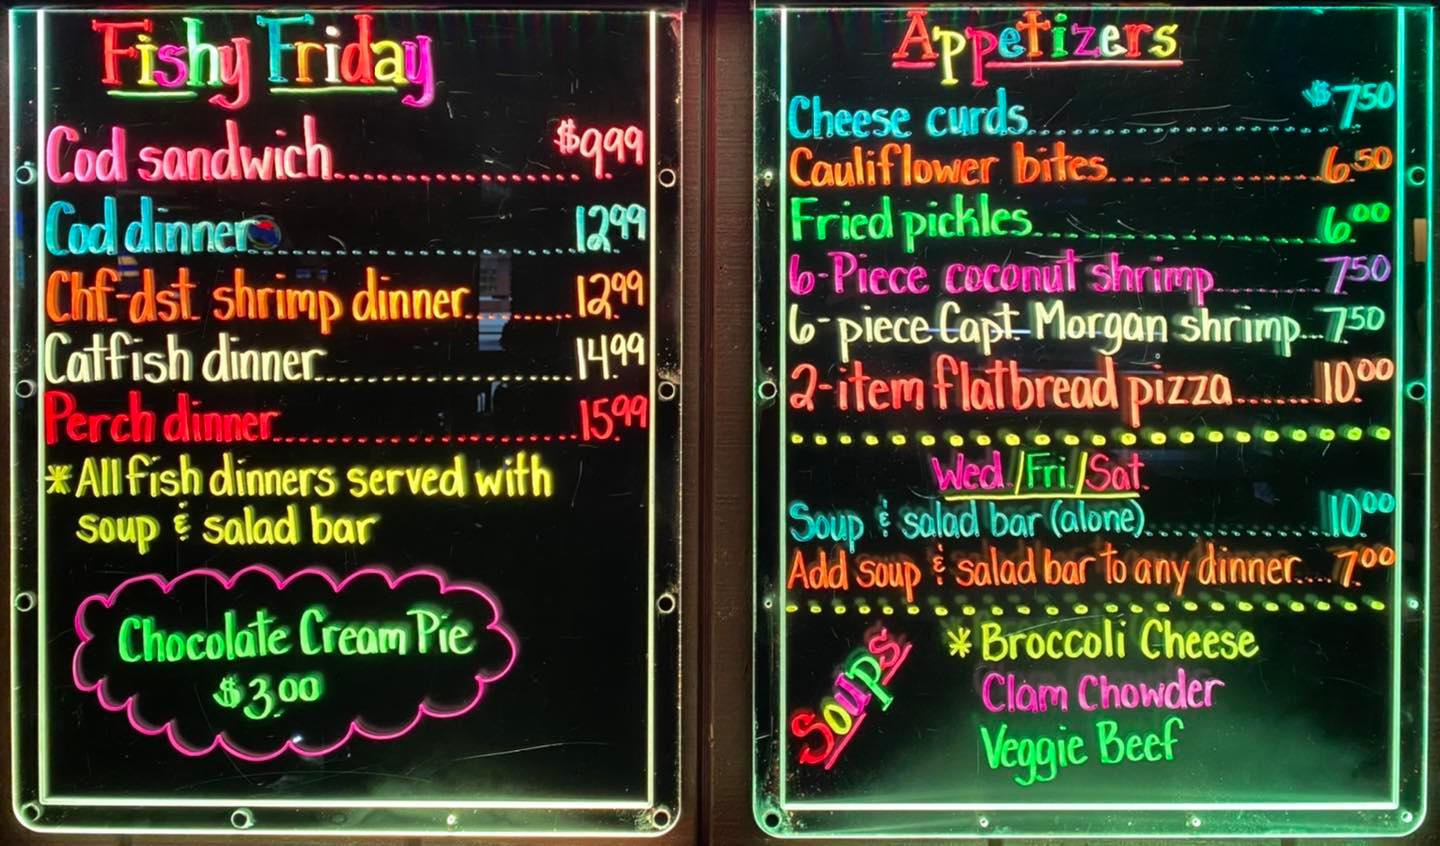 Fishy Friday
Cod sandwich..................$9.99
Cod dinner......................12.99
Chf-dst shrimp dinner.........12.99
Catfish dinner........................14.99
Perch dinner..........................15.99
* All fish dinners served with
soup & salad bar
Chocolate Cream Pie
$3.00
Appetizers
Cheese curds..............................$7.50
Cauliflower bites....................6.50
Fried pickles..........................6.00
6-Piece coconut shrimp..........7.50
6-piece Capt Morgan shrimp...7.50
2-item flatbread pizza.......10.00
Wed/Fri/Sat.
Soup & salad bar (alone)................10.00
Add soup & salad bar to any dinner....7.00
Soups
* Broccoli Cheese
Clam Chowder
Veggie Beef